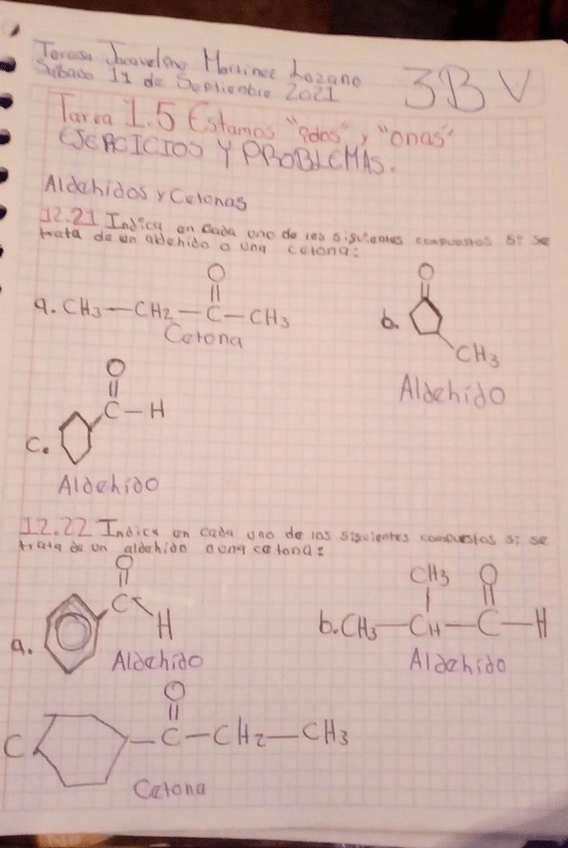 Teresa Jaqueline Martinez Lozano
Sabado 11 de Septiembre 2021
3B V
Tarea 1.5 Estamos "idos" y "onas"
EJERCICIOS Y PROBLEMAS.
Aldehidos y Cetonas
12.21 Indica en cada uno de los siguientes compuestos si se
trata de un aldehido o una cetona:
O
a. CH3-CH2-C-CH3
Cetona
O
b.
CH3
Aldehido
O
C-H
c.
Aldehido
12.22 Indica en cada uno de los siguientes compuestos si se
trata de un aldehido o una cetona:
O
C
H
a.
Aldehido
CH3 O
b. CH3-CH-C-H
Aldehido
O
C -C-CH2-CH3
Cetona